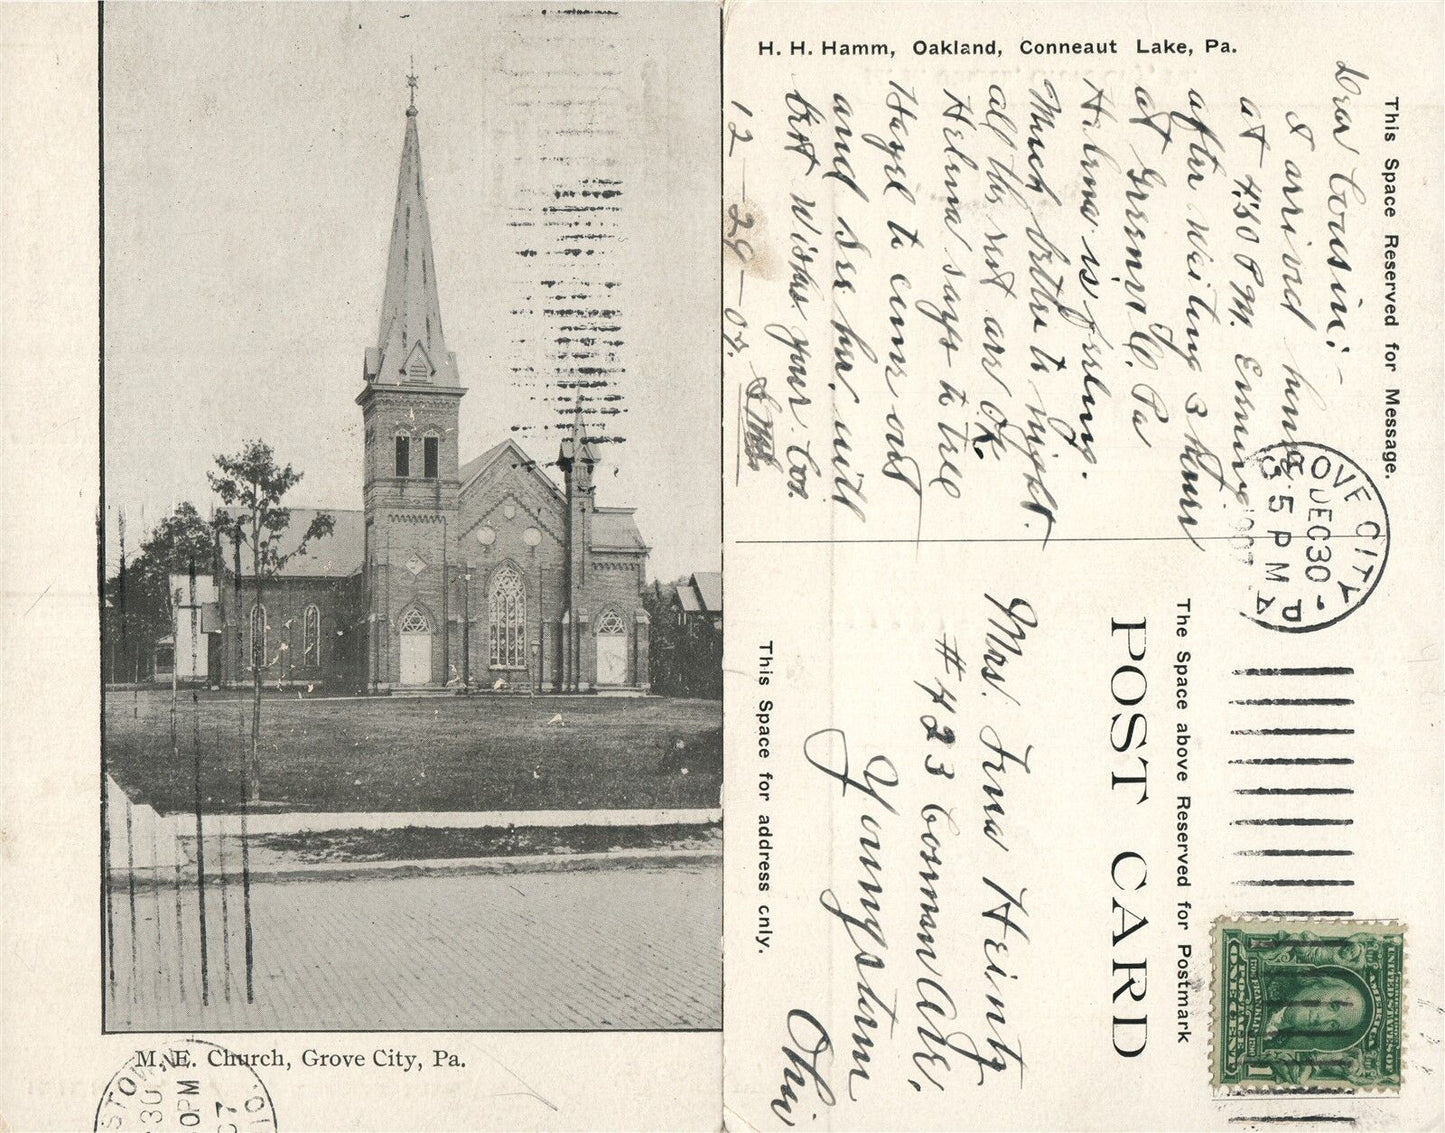 M. E. Church, Grove City, Pa.
STOWN
30
0 PM
07
OI
H. H. Hamm, Oakland, Conneaut Lake, Pa.
This Space Reserved for Message.
Dear Cousin:-
I arrived home
at 4:50 P.M. Evening
after waiting 3 hours
at Greenville. Pa
Helma is feeling.
Much better to night.
all the rest are OK.
Helma says to tell
Hazel to come out
and see her. with
best Wishes your Coz.
12-29-07.
GROVE CITY
DEC 30
5 PM
1907
PA
The Space above Reserved for Postmark
POST CARD
Mrs. Irna Heintz
# 423 Ave,
Youngstown
Ohio
This Space for address only.
UNITED STATES OF
AMERICA
FRANKLIN
POSTAGE
ONE CENT
1